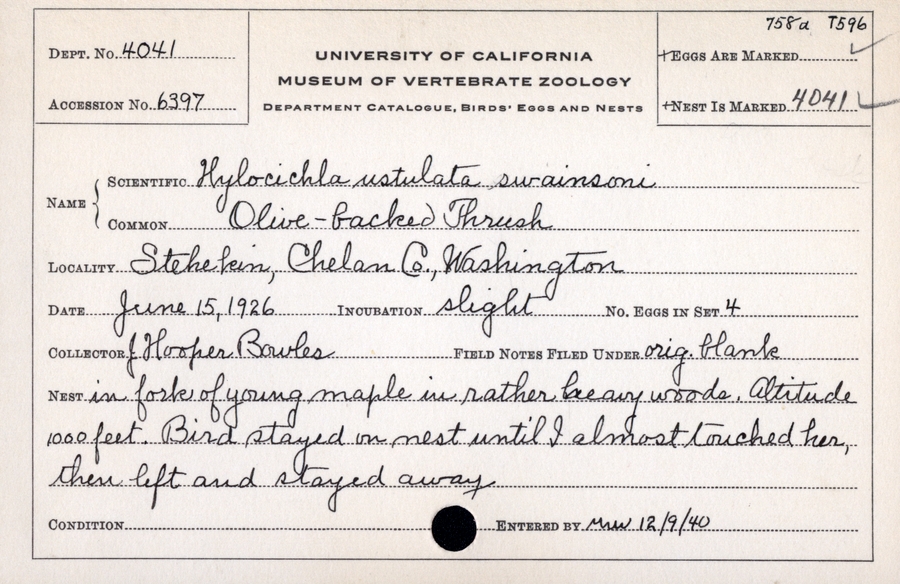 758a T596
DEPT. NO. 4041
UNIVERSITY OF CALIFORNIA
MUSEUM OF VERTEBRATE ZOOLOGY
DEPARTMENT CATALOGUE, BIRDS' EGGS AND NESTS
+EGGS ARE MARKED
ACCESSION NO. 6397
+NEST IS MARKED 4041
NAME
SCIENTIFIC Hylocichla ustulata swainsoni
COMMON Olive-backed Thrush
LOCALITY Stehekin, Chelan Co., Washington
DATE June 15, 1926 INCUBATION slight NO. EGGS IN SET 4
COLLECTOR J Hooper Bowles FIELD NOTES FILED UNDER orig. blank
NEST in fork of young maple in rather heavy woods. Altitude
1000 feet. Bird stayed on nest until I almost touched her,
then left and stayed away
CONDITION ENTERED BY mw 12/9/40